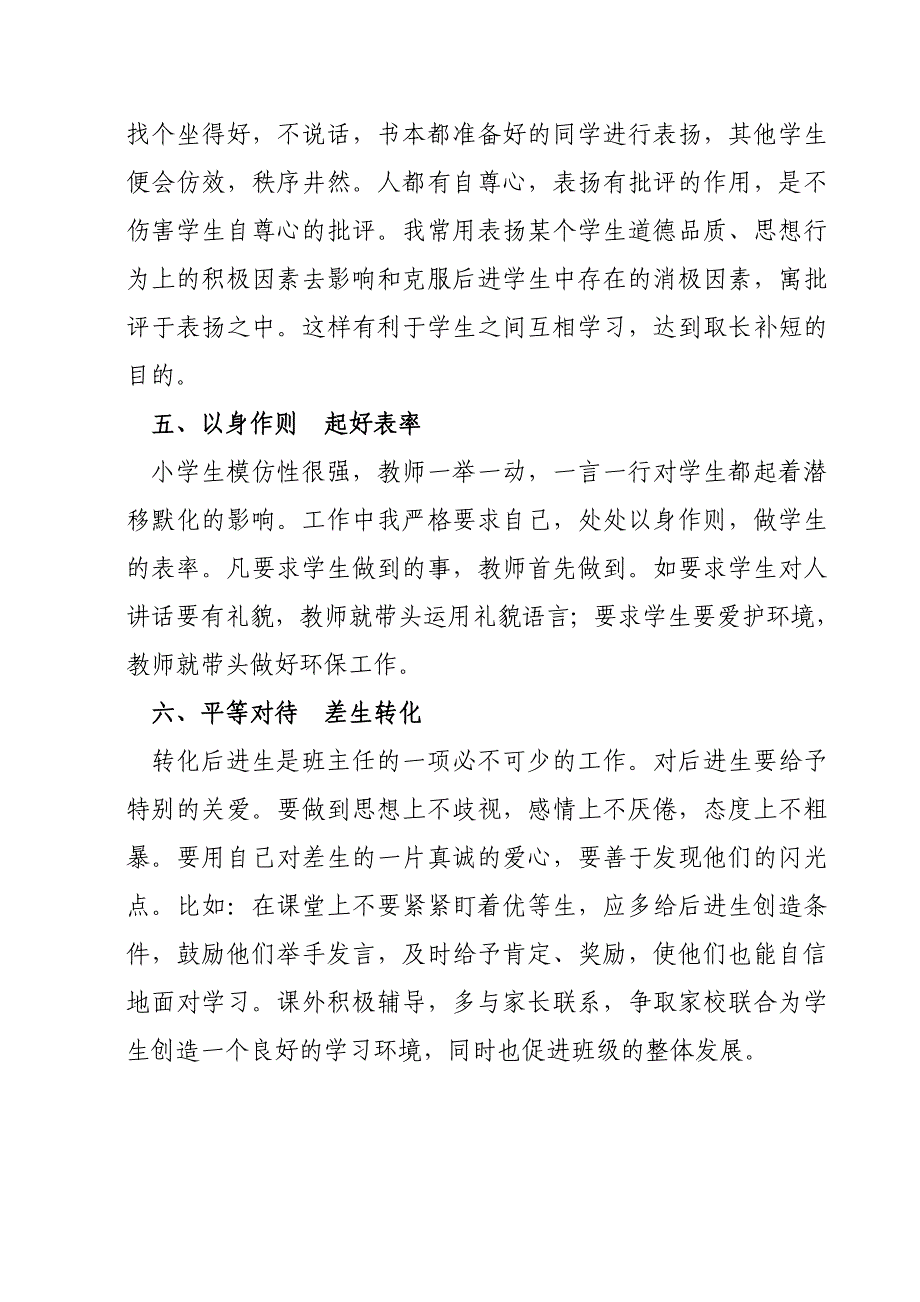 找个坐得好，不说话，书本都准备好的同学进行表扬，其他学生
便会仿效，秩序井然。人都有自尊心，表扬有批评的作用，是不
伤害学生自尊心的批评。我常用表扬某个学生道德品质、思想行
为上的积极因素去影响和克服后进学生中存在的消极因素，寓批
评于表扬之中。这样有利于学生之间互相学习，达到取长补短的
目的。
五、以身作则　起好表率
小学生模仿性很强，教师一举一动，一言一行对学生都起着潜
移默化的影响。工作中我严格要求自己，处处以身作则，做学生
的表率。凡要求学生做到的事，教师首先做到。如要求学生对人
讲话要有礼貌，教师就带头运用礼貌语言；要求学生要爱护环境，
教师就带头做好环保工作。
六、平等对待　差生转化
转化后进生是班主任的一项必不可少的工作。对后进生要给予
特别的关爱。要做到思想上不歧视，感情上不厌倦，态度上不粗
暴。要用自己对差生的一片真诚的爱心，要善于发现他们的闪光
点。比如：在课堂上不要紧紧盯着优等生，应多给后进生创造条
件，鼓励他们举手发言，及时给予肯定、奖励，使他们也能自信
地面对学习。课外积极辅导，多与家长联系，争取家校联合为学
生创造一个良好的学习环境，同时也促进班级的整体发展。